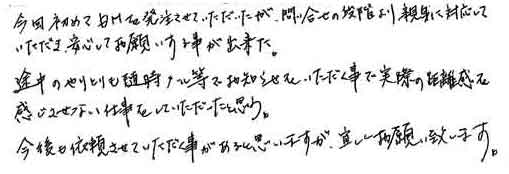 今回初めて DM を発注させていただいたが、問い合せの段階より親身に対応して
いただき、安心してお願いする事が出来た。
途中のやりとりも随時メール等でお知らせをいただく事で実際の距離感を
感じさせない仕事をしていただいたと思う。
今後も依頼させていただく事があると思いますが、宜しくお願い致します。